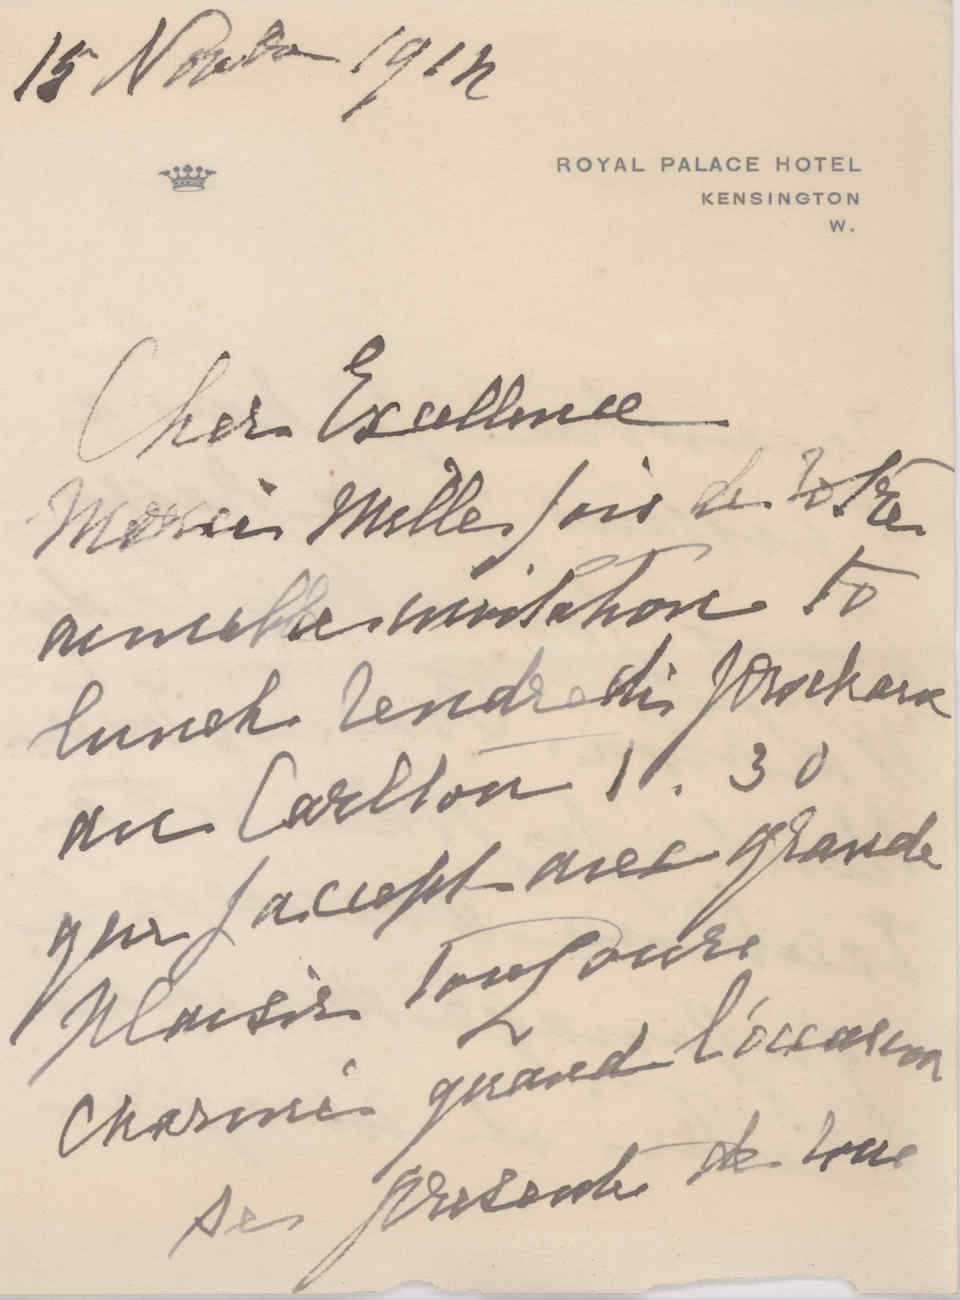 15 Novbr 1912
ROYAL PALACE HOTEL
KENSINGTON
W.
Cher Excellence
Merci Mille fois de Votre
aimable invitation to
lunch Vendredi prochain
au Carlton 1.30
que j'accept avec grande
plaisir toujours
charmé quand l'occasion
se presente de vous